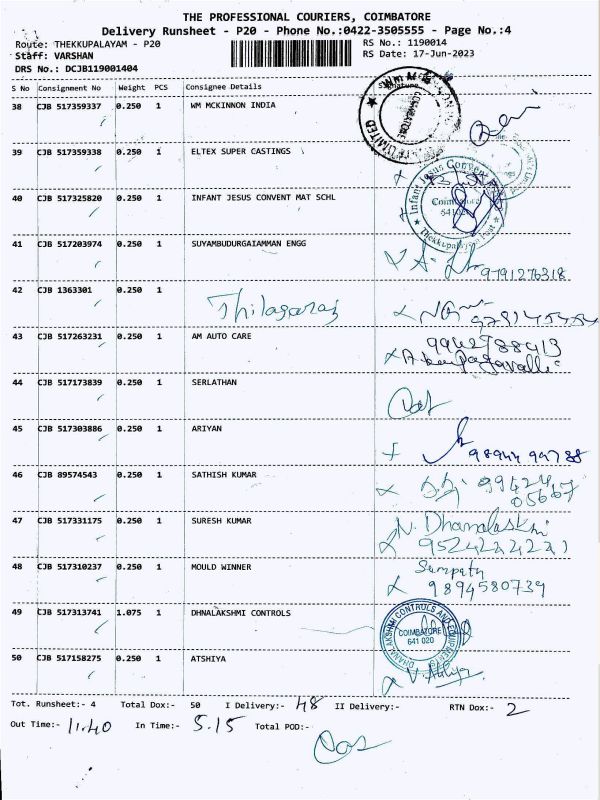 THE PROFESSIONAL COURIERS, COIMBATORE
Delivery Runsheet - P20 - Phone No.:0422-3505555 - Page No.:4
Route: THEKKUPALAYAM - P20 RS No.: 1190014
Staff: VARSHAN RS Date: 17-Jun-2023
DRS No.: DCJB119001404
S No Consignment No Weight PCS Consignee Details
38 CJB 517359337 0.250 1 WM MCKINNON INDIA
COIMBATORE LIMITED
39 CJB 517359338 0.250 1 ELTEX SUPER CASTINGS
40 CJB 517325820 0.250 1 INFANT JESUS CONVENT MAT SCHL
Infant Jesus Convent
Coimbatore
Thekkupalayam Post
41 CJB 517203974 0.250 1 SUYAMBUDURGAIAMMAN ENGG
9791276318
42 CJB 1363301 0.250 1 Thilagaraj
43 CJB 517263231 0.250 1 AM AUTO CARE
44 CJB 517173839 0.250 1 SERLATHAN
45 CJB 517303886 0.250 1 ARIYAN
46 CJB 89574543 0.250 1 SATHISH KUMAR
99424
05667
47 CJB 517331175 0.250 1 SURESH KUMAR
48 CJB 517310237 0.250 1 MOULD WINNER
9894580739
49 CJB 517313741 1.075 1 DHNALAKSHMI CONTROLS
DHANALAKSHMI CONTROLS AND EQUIPMENTS
COIMBATORE
641 020
50 CJB 517158275 0.250 1 ATSHIYA
Tot. Runsheet:- 4 Total Dox:- 50 I Delivery:- 48 II Delivery:- RTN Dox:- 2
Out Time:- 11.40 In Time:- 5.15 Total POD:-